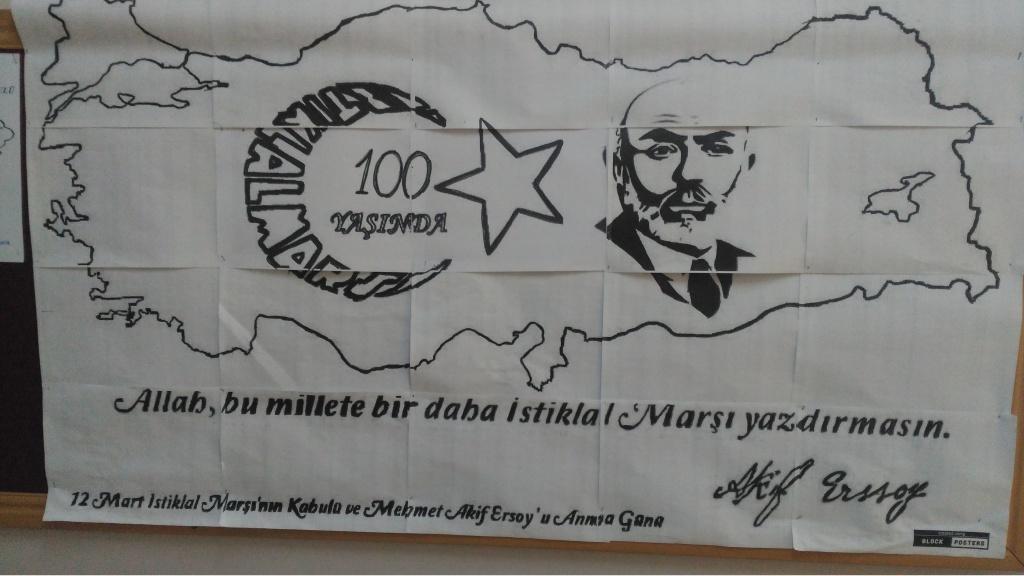 İSTİKLAL MARŞI
100
YAŞINDA
Allah, bu millete bir daha İstiklal Marşı yazdırmasın.
Akif Ersoy
12 Mart İstiklal Marşı'nın Kabulü ve Mehmet Akif Ersoy'u Anma Günü
BLOCK POSTERS